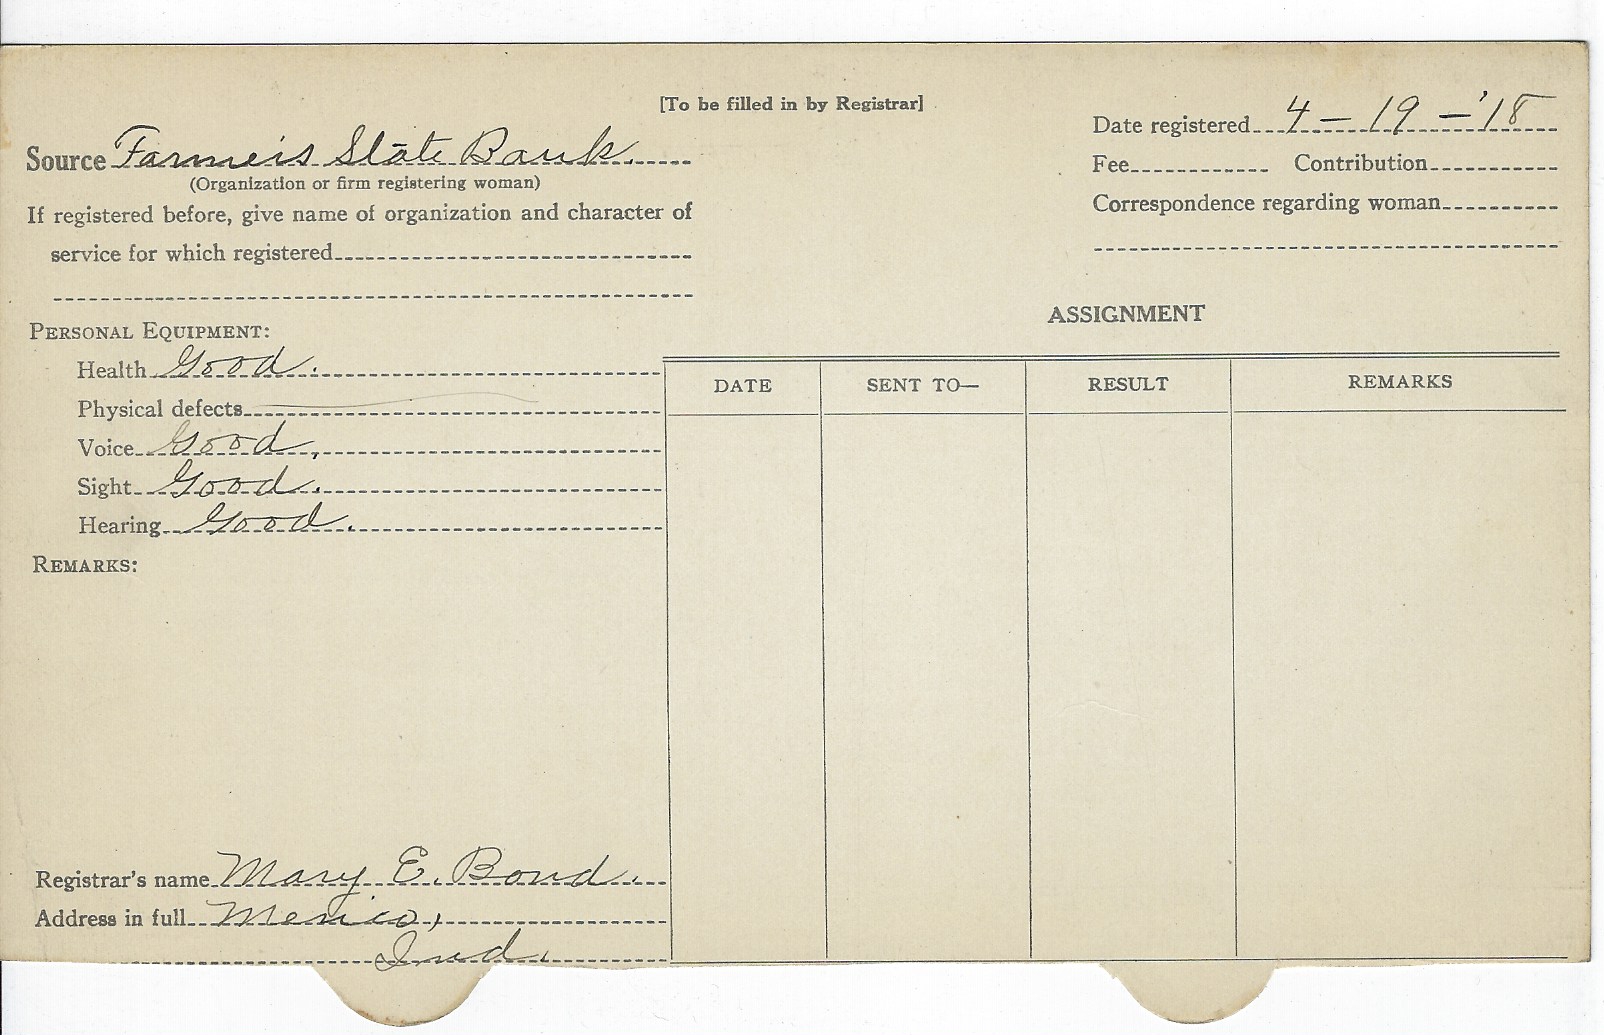 [To be filled in by Registrar]
Source Farmers State Bank.
(Organization or firm registering woman)
If registered before, give name of organization and character of
service for which registered
Date registered 4 - 19 - '18
Fee Contribution
Correspondence regarding woman
PERSONAL EQUIPMENT:
Health Good.
Physical defects
Voice Good,
Sight Good.
Hearing Good.
REMARKS:
Registrar's name Mary E. Bond.
Address in full Mexico,
Ind.
ASSIGNMENT
DATE SENT TO— RESULT REMARKS